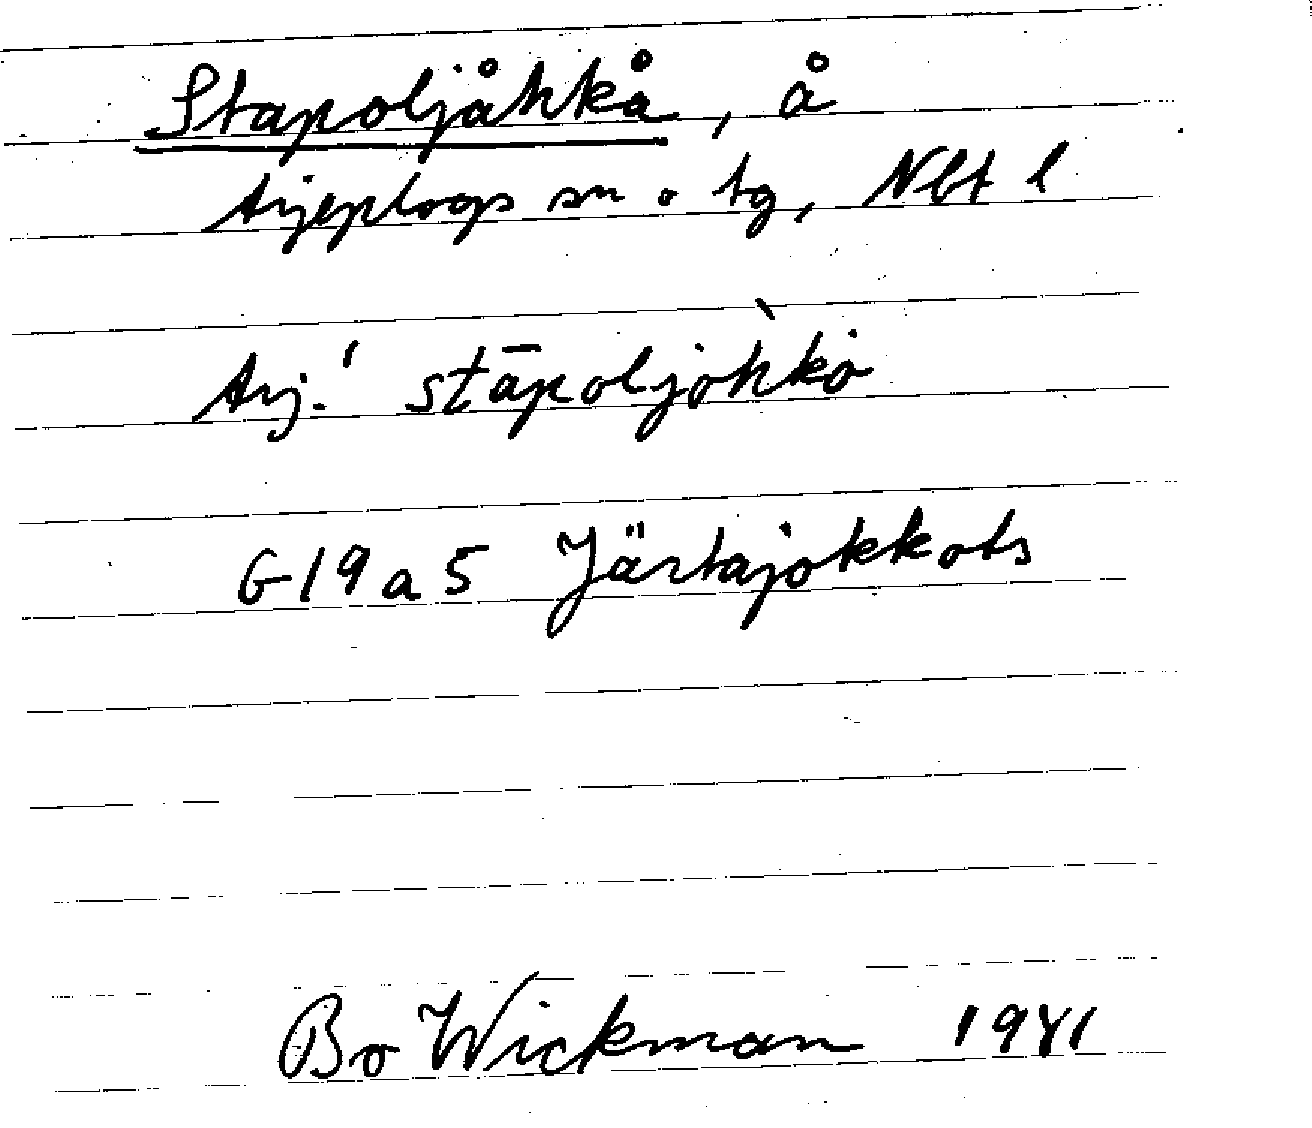 Stapoljåhkå, å
Arjeplogs sn o tg, Nbt l
Arj.' stāpoljòhkȯ
G19a5 Järtajokkots
Bo Wickman 1981